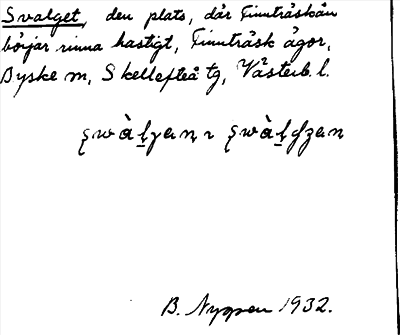 Svalget, den plats, där Finnträskån
börjar rinna hastigt, Finnträsk ägor,
Byske sn, Skellefteå tg, Västerb. l.
B. Nygren 1932.